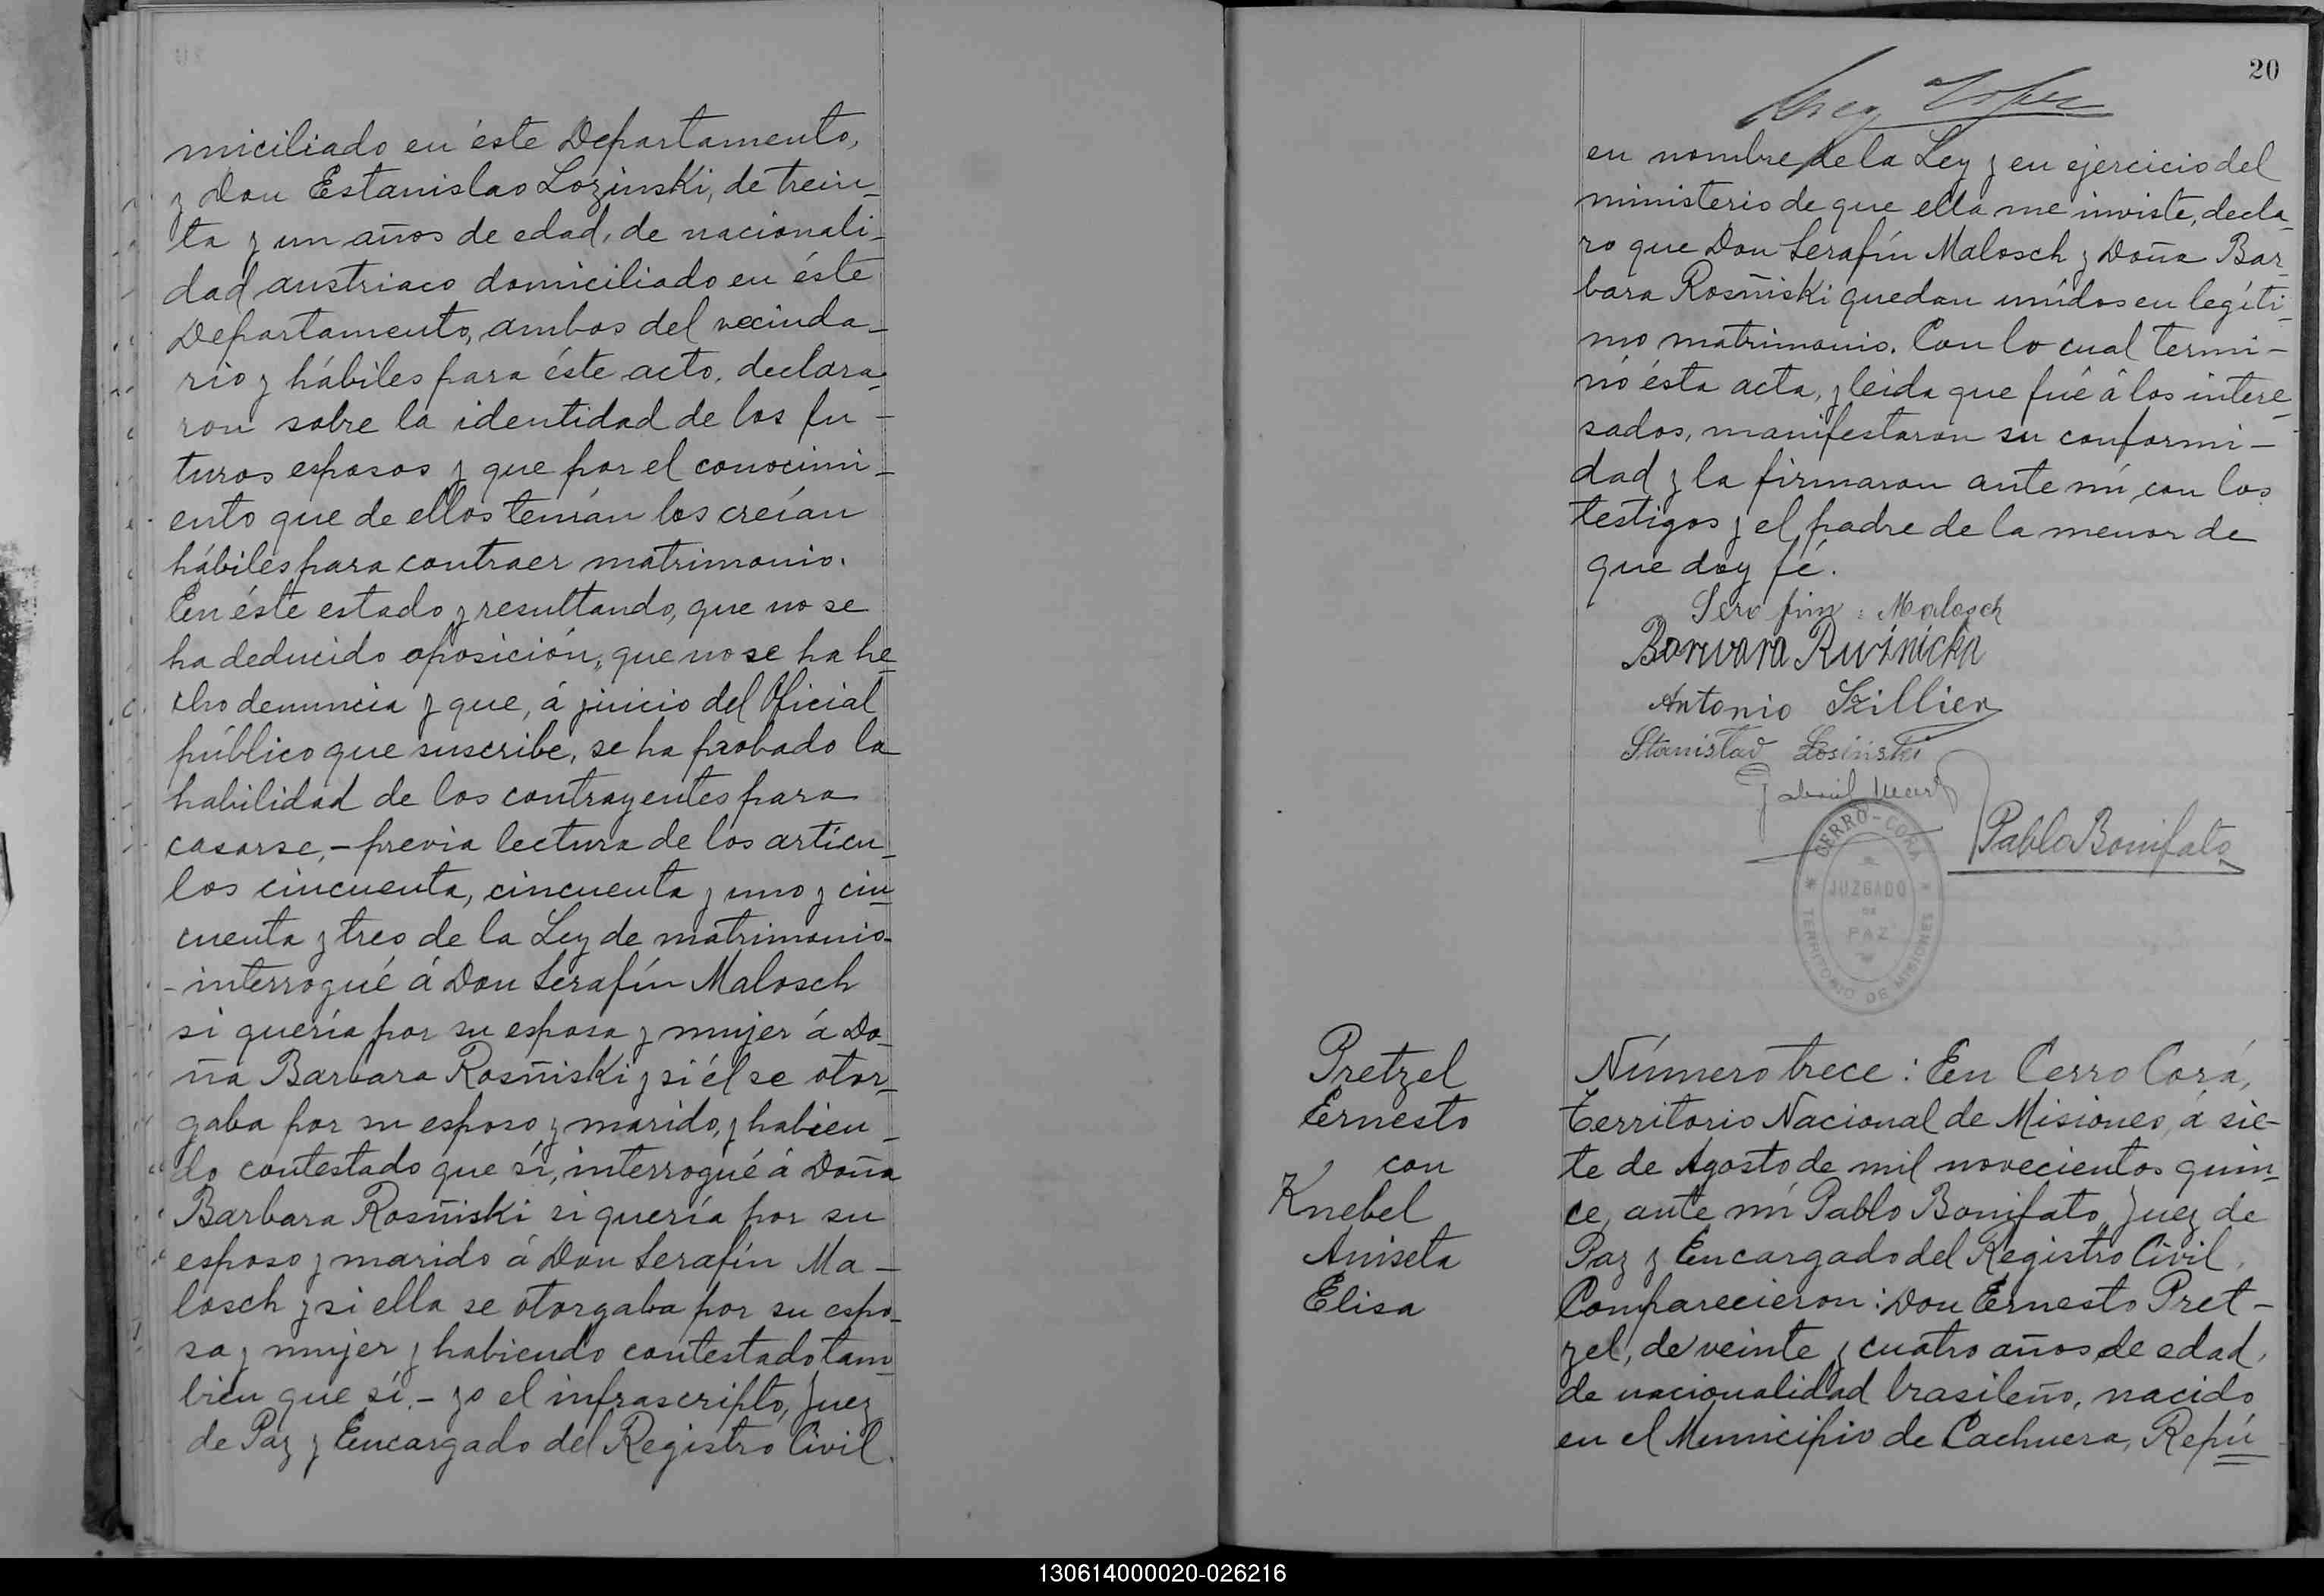 miciliado en éste Departamento,
y Don Estanislao Lozinski, de trein-
ta y un años de edad, de nacionali-
dad austriaco domiciliado en éste
Departamento, ambos del vecinda-
rio y hábiles para éste acto, declara-
ron sobre la identidad de los fu-
turos esposos y que por el conocimi-
ento que de ellos tenían los creían
hábiles para contraer matrimonio.
En éste estado y resultando, que no se
ha deducido oposición, que no se ha he-
cho denuncia y que, á juicio del Oficial
público que suscribe, se ha probado la
habilidad de los contrayentes para
casarse, - previa lectura de los artícu-
los cincuenta, cincuenta y uno y cin-
cuenta y tres de la Ley de matrimonio-
- interrogué á Don Serafín Malosch
si quería por su esposa y mujer á Do-
ña Barbara Rosñiski y si él se otor-
gaba por su esposo y marido, y habien-
do contestado que sí, interrogué á Doña
Barbara Rosñiski si quería por su
esposo y marido á Don Serafín Ma-
losch y si ella se otorgaba por su espo-
sa y mujer y habiendo contestado tam-
bien que sí. - yo el infrascripto, Juez
de Paz y Encargado del Registro Civil.
20
en nombre de la Ley y en ejercicio del
ministerio de que ella me inviste, decla-
ro que Don Serafín Malosch y Doña Bar-
bara Rosñiski quedan unidos en legíti-
mo matrimonio. Con lo cual termi-
nó ésta acta, y leida que fué á los intere-
sados, manifestaron su conformi-
dad y la firmaron ante mí, con los
testigos y el padre de la menor de
que doy fé.
Malosch
Barwara Ruźnicka
Antonio Szillier
Stanislav Losinski
Gabriel
Pablo Bonifato
CERRO-CORÁ
JUZGADO
DE
PAZ
TERRITORIO DE MISIONES
Pretzel
Ernesto
con
Knebel
Aniseta
Elisa
Número trece: En Cerro Corá,
Territorio Nacional de Misiones, á sie-
te de Agosto de mil novecientos quin-
ce, ante mí Pablo Bonifato, Juez de
Paz y Encargado del Registro Civil.
Comparecieron: Don Ernesto Pret-
zel, de veinte y cuatro años de edad,
de nacionalidad brasileño, nacido
en el Municipio de Cachuera, Repú-
130614000020-026216